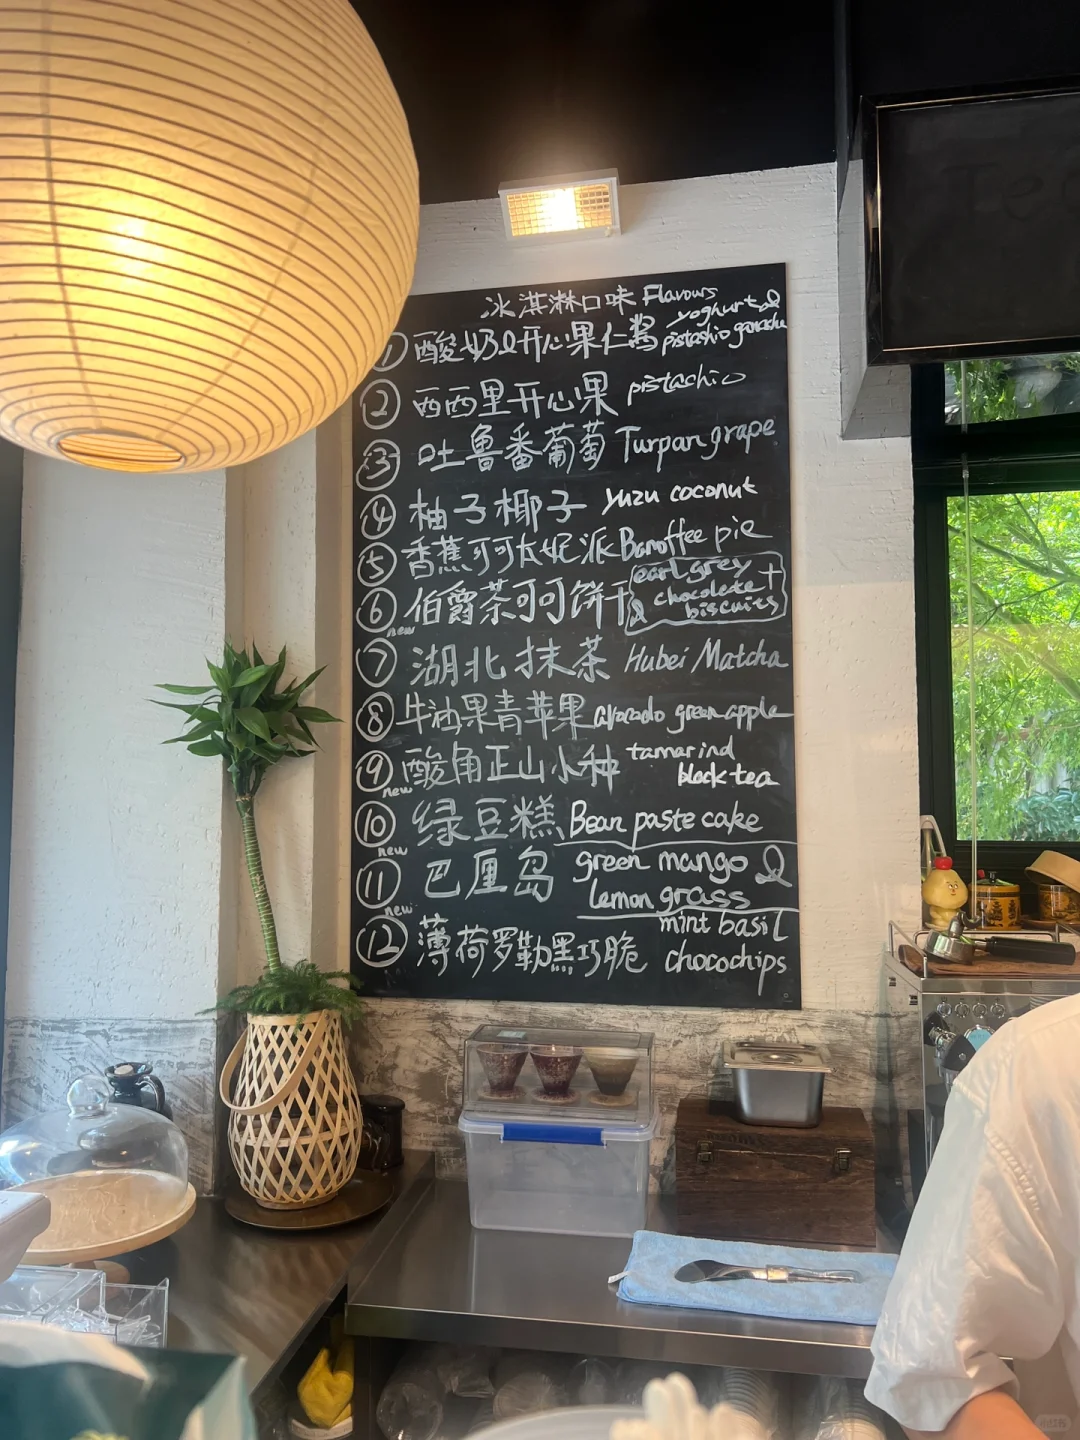 冰淇淋口味 Flavours
① 酸奶&开心果仁酱 yoghurt & pistashio ganache
② 西西里开心果 pistachio
③ 吐鲁番葡萄 Turpan grape
④ 柚子椰子 yuzu coconut
⑤ 香蕉可可太妃派 Banoffee pie
⑥ 伯爵茶可可饼干 earl grey + chocolate & biscuits
new
⑦ 湖北抹茶 Hubei Matcha
⑧ 牛油果青苹果 avocado green apple
⑨ 酸角正山小种 tamarind black tea
new
⑩ 绿豆糕 Bean paste cake
new
⑪ 巴厘岛 green mango & Lemon grass
new
⑫ 薄荷罗勒黑巧脆 mint basil chocochips